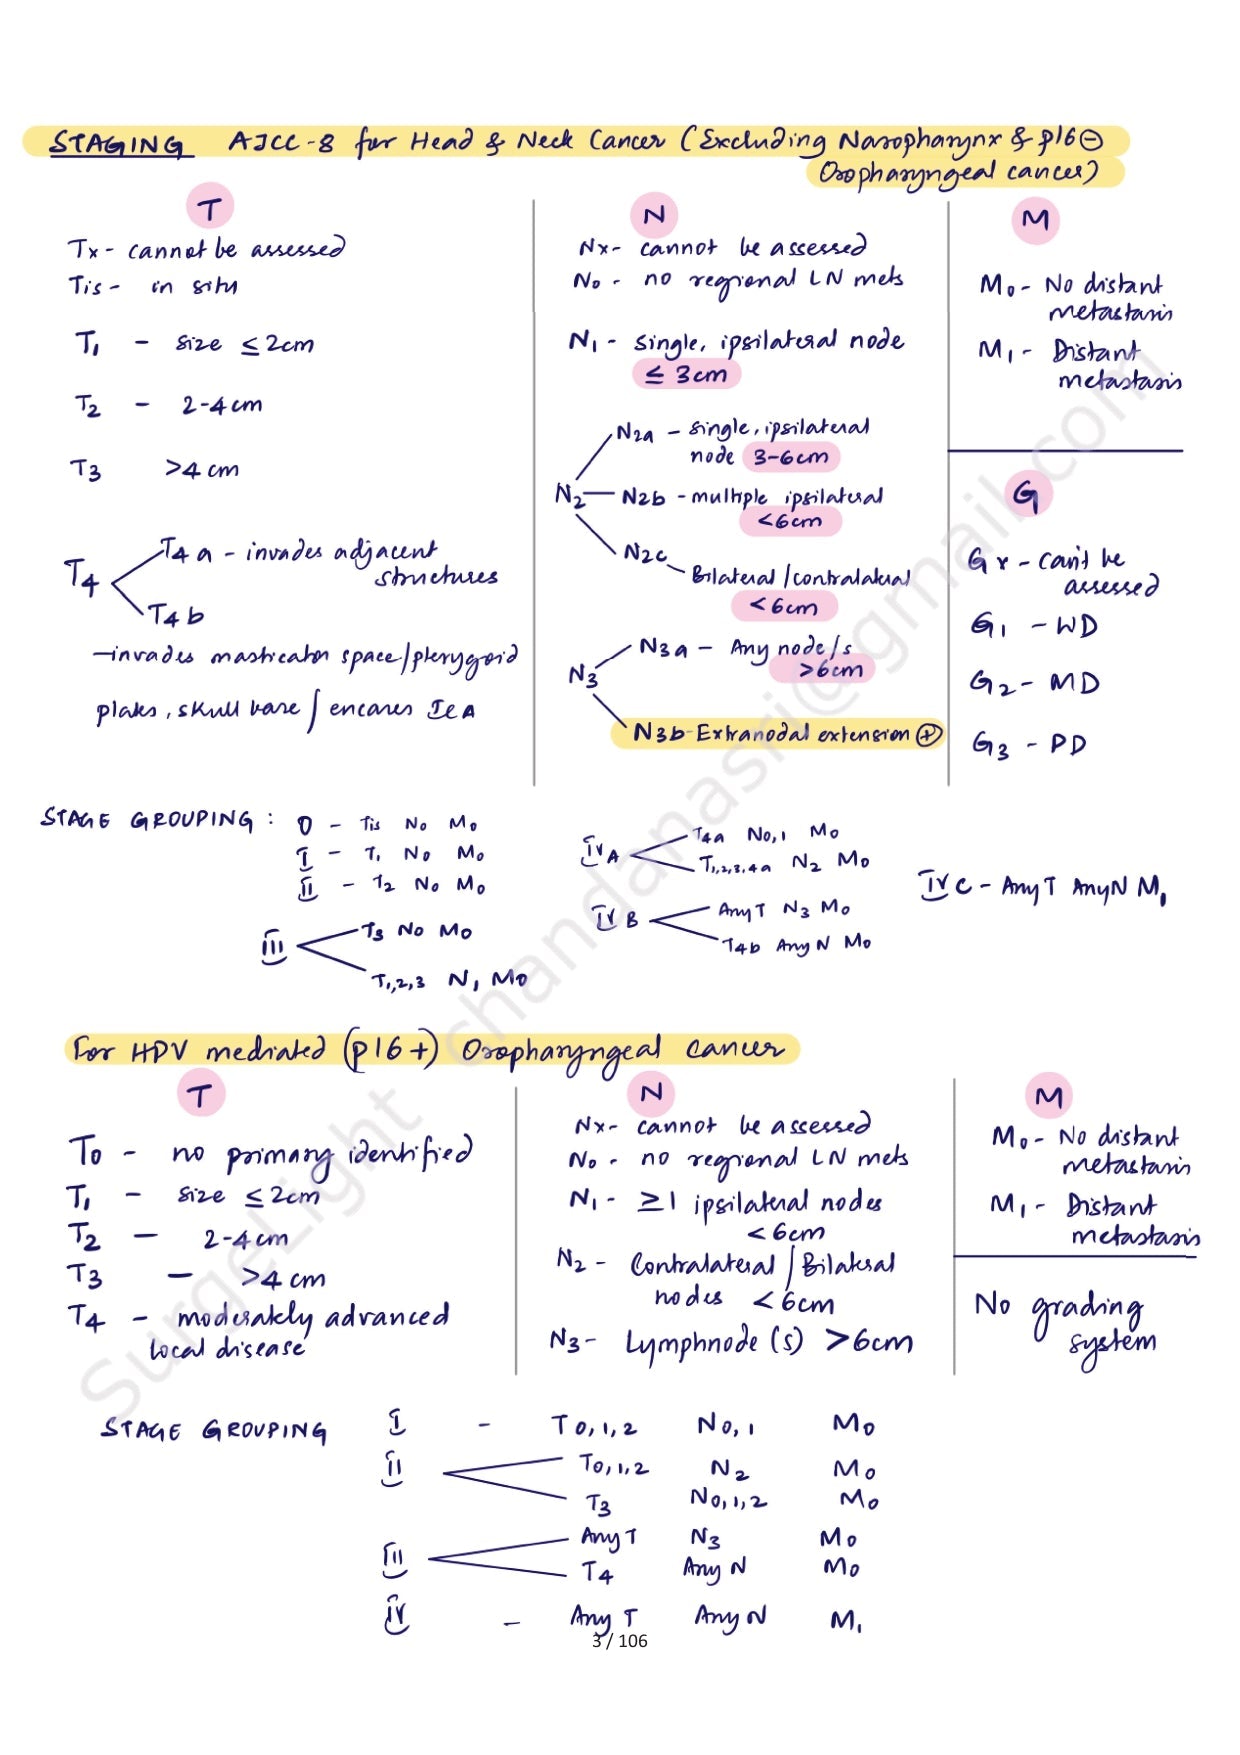 STAGING AJCC-8 for Head & Neck Cancer (Excluding Nasopharynx & p16⊖
Oropharyngeal cancer)
T
Tx - cannot be assessed
Tis - in situ
T1 - size ≤2cm
T2 - 2-4cm
T3 >4cm
T4
T4a - invades adjacent
structures
T4b
- invades masticator space/pterygoid
plates, skull base / encases ICA
N
Nx - cannot be assessed
N0 - no regional LN mets
N1 - single, ipsilateral node
≤ 3cm
N2
N2a - single, ipsilateral
node 3-6cm
N2b - multiple ipsilateral
<6cm
N2c
- Bilateral/contralateral
<6cm
N3
N3a - Any node/s
>6cm
N3b - Extranodal extension ⊕
M
M0 - No distant
metastasis
M1 - Distant
metastasis
G
Gx - can't be
assessed
G1 - WD
G2 - MD
G3 - PD
STAGE GROUPING :
0 - Tis N0 M0
I - T1 N0 M0
II - T2 N0 M0
III
T3 N0 M0
T1,2,3 N1 M0
IVA
T4a N0,1 M0
T1,2,3,4a N2 M0
IVB
Any T N3 M0
T4b Any N M0
IVC - Any T Any N M1
For HPV mediated (p16+) Oropharyngeal cancer
T
T0 - no primary identified
T1 - size ≤2cm
T2 - 2-4cm
T3 - >4cm
T4 - moderately advanced
local disease
N
Nx - cannot be assessed
N0 - no regional LN mets
N1 - ≥1 ipsilateral nodes
<6cm
N2 - Contralateral/Bilateral
nodes <6cm
N3 - Lymphnode(s) >6cm
M
M0 - No distant
metastasis
M1 - Distant
metastasis
No grading
system
STAGE GROUPING
I - T0,1,2 N0,1 M0
II
T0,1,2 N2 M0
T3 N0,1,2 M0
III
Any T N3 M0
T4 Any N M0
IV - Any T Any N M1
3 / 106
SurgeLight chandanasri@gmail.com